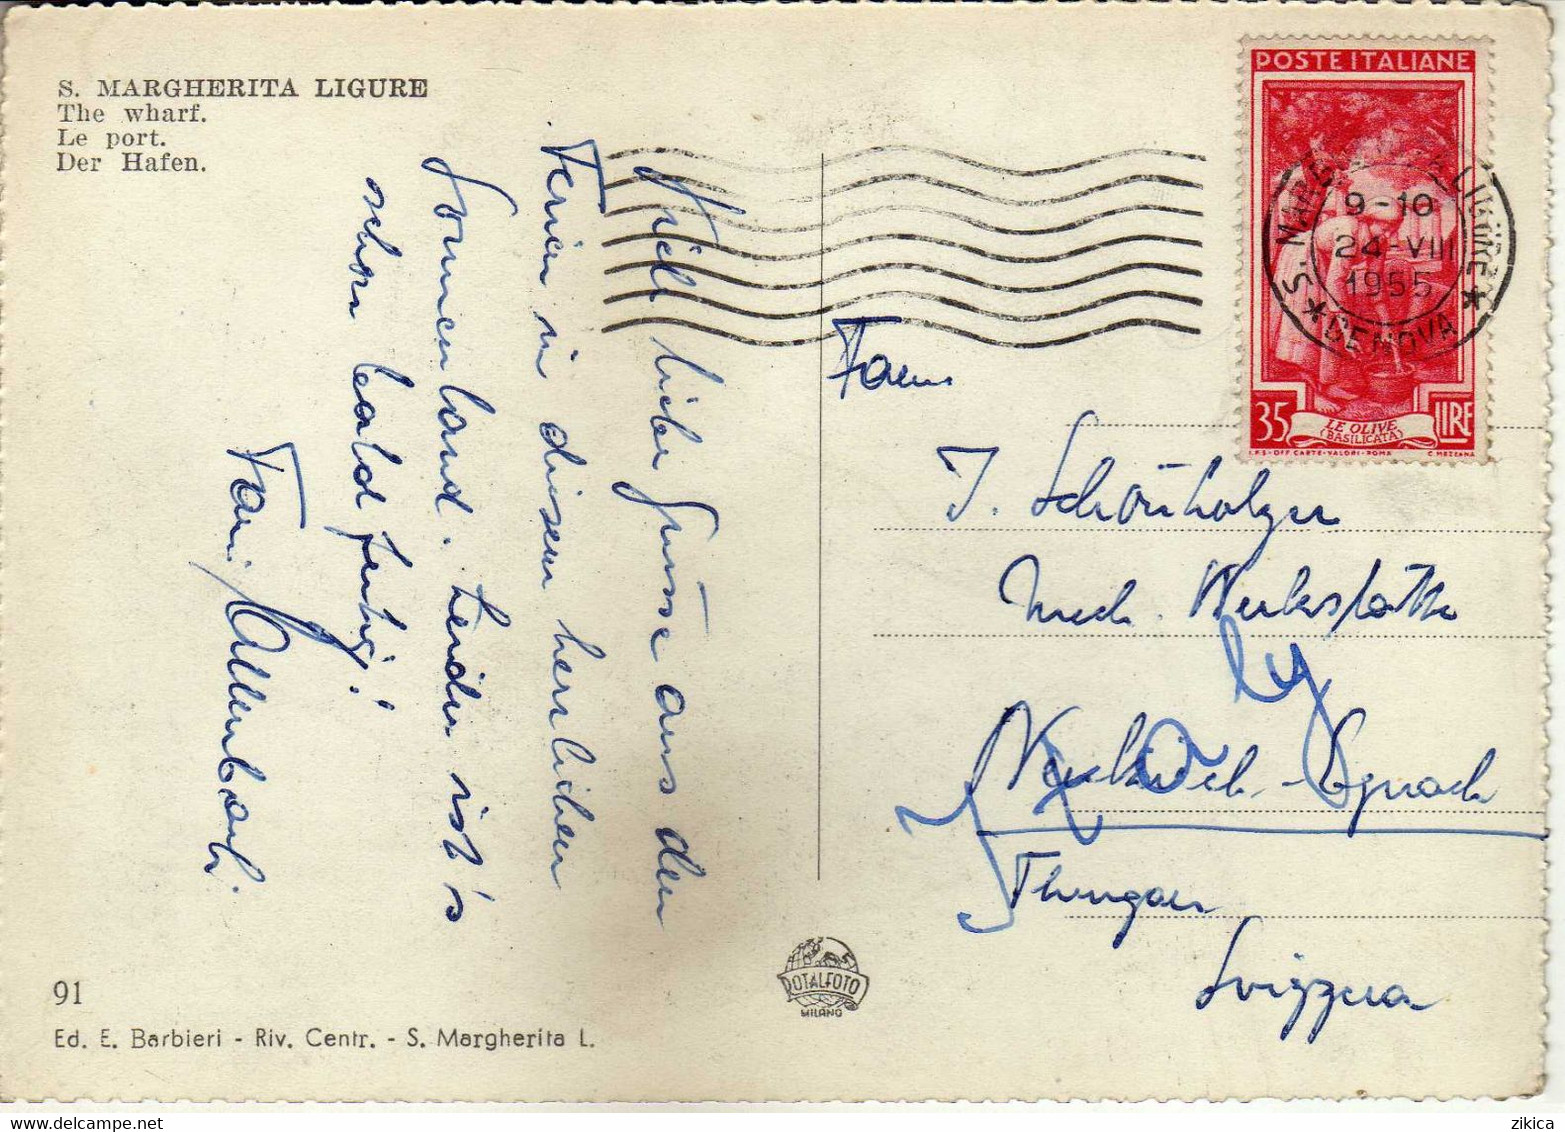 S. MARGHERITA LIGURE
The wharf.
Le port.
Der Hafen.
Viele liebe Grüsse aus den
Ferien in diesem herrlichen
Sonnenland. Leider ist's
schon bald fertig!
POSTE ITALIANE
35 LIRE
LE OLIVE
(BASILICATA)
I.P.S-OFF CARTE-VALORI-ROMA C. MEZZANA
9-10
24-VIII
1955
GENOVA
Fam.
J. Schönholzer
mech. Werkstätte
Neukirch-Egnach
Thurgau
Svizzera
91
Ed. E. Barbieri - Riv. Centr. - S. Margherita L.
ROTALFOTO
MILANO
www.delcampe.net
zikica